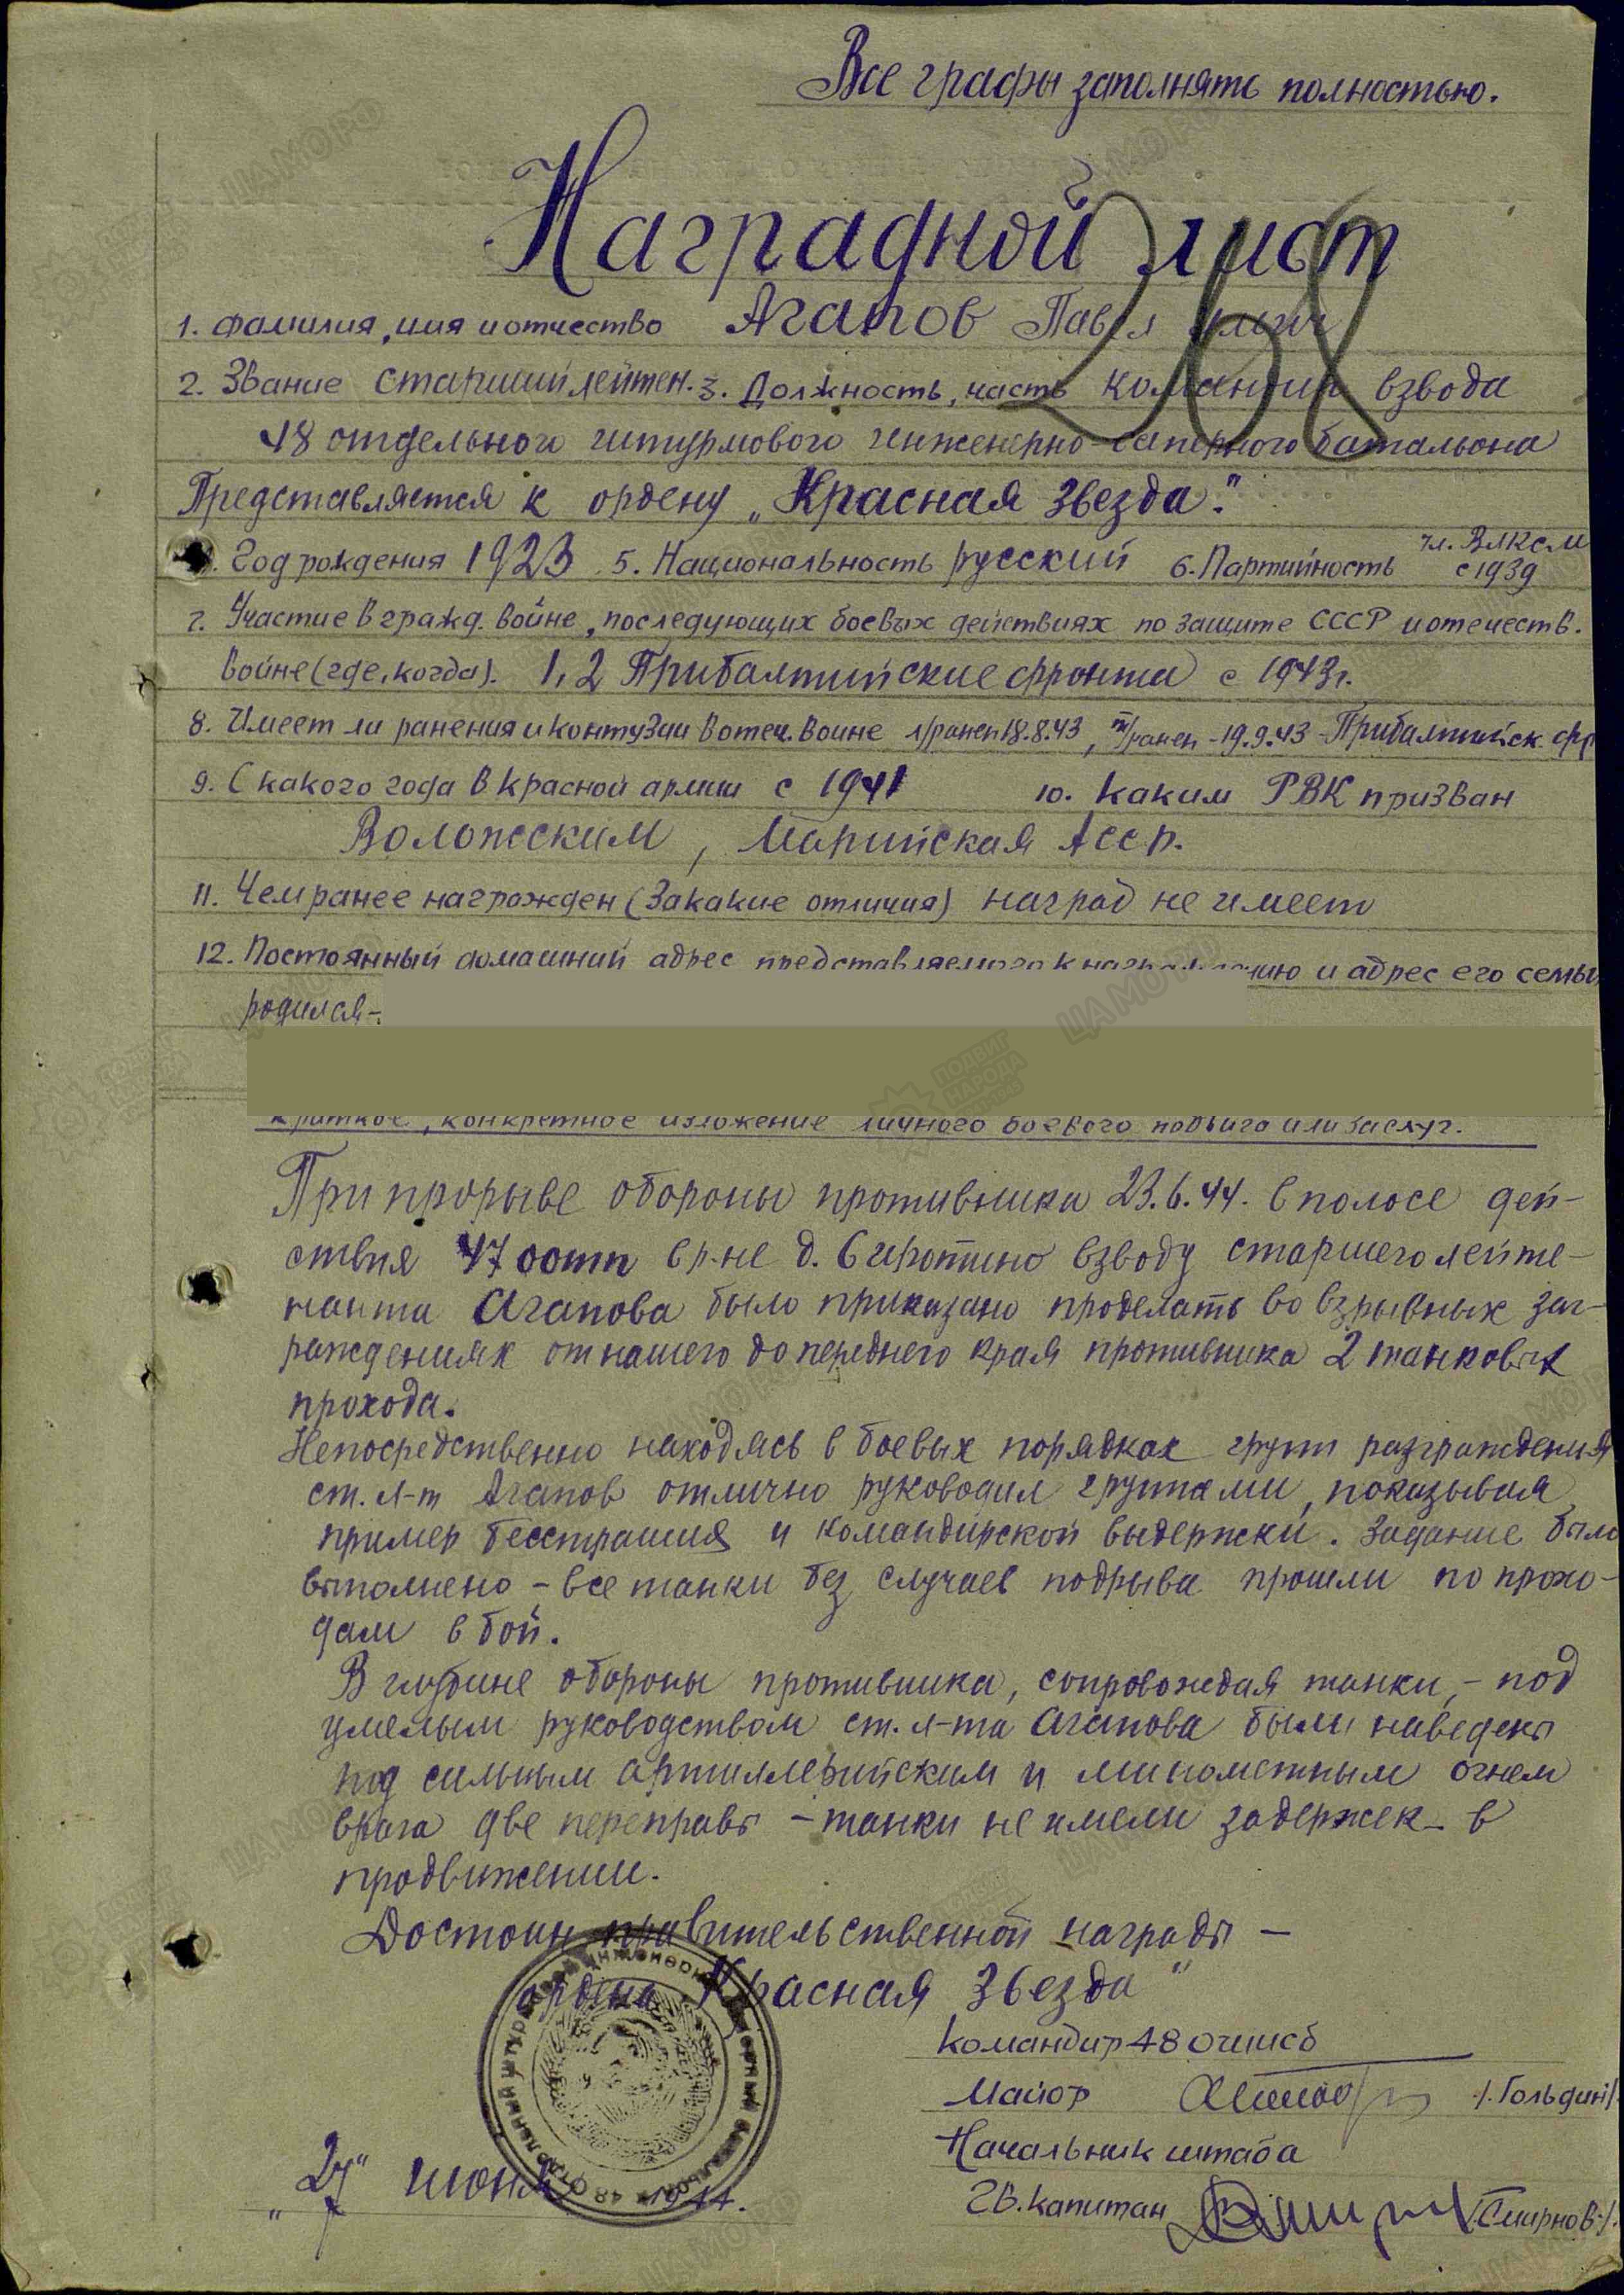 Все графы заполнять полностью.
Наградной лист
268
1. Фамилия, имя и отчество Агапов Павел
2. Звание старший лейтен. 3. Должность, часть командир взвода
48 отдельного штурмового инженерно-саперного батальона
Представляется к ордену „Красная звезда".
Год рождения 1923 5. Национальность русский 6. Партийность чл. ВЛКСМ
с 1939
7. Участие в гражд. войне, последующих боевых действиях по защите СССР и отечеств.
войне (где, когда). 1, 2 Прибалтийские фронта с 1943 г.
8. Имеет ли ранения и контузии в отеч. войне л/ранен 18.8.43, т/ранен - 19.9.43 - Прибалтийск. фр
9. С какого года в красной армии с 1941 10. каким РВК призван
Воложским, Марийская АССР.
11. Чем ранее награжден (за какие отличия) наград не имеет
12. Постоянный домашний адрес представляемого к награждению и адрес его семьи
родился -
Краткое, конкретное изложение личного боевого подвига или заслуг.
При прорыве обороны противника 23.6.44. в полосе дей-
ствия 47 оотп в р-не д. Сиротино взводу старшего лейте-
нанта Агапова было приказано проделать во взрывных заг-
раждениях от нашего до переднего края противника 2 танковых
прохода.
Непосредственно находясь в боевых порядках групп разграждения
ст. л-т Агапов отлично руководил группами, показывая
пример бесстрашия и командирской выдержки. Задание было
выполнено - все танки без случаев подрыва прошли по прохо-
дам в бой.
В глубине обороны противника, сопровождая танки, - под
умелым руководством ст. л-та Агапова были наведены
под сильным артиллерийским и минометным огнем
врага две переправы - танки не имели задержек в
продвижении.
Достоин правительственной награды -
ордена Красная Звезда"
Командир 48 ошисб
Майор /.Гольдин/
Начальник штаба
„27" июня 1944.
Гв. капитан /.Смирнов./.
48 отдельный штурмовой инженерно-саперный батальон
ЦАМО РФ
ПОДВИГ НАРОДА